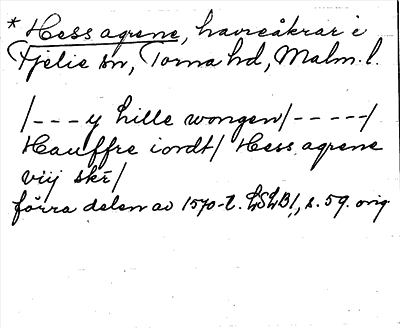 * Hess agrene, havreåkrar i
Fjelie sn, Torna hd, Malm. l.
/- - - y hille wongen/- - - - -/
Hauffre iordt/ Hess agrene
viij skē/
förra delen av 1570-t. LSLB!, s. 59. orig